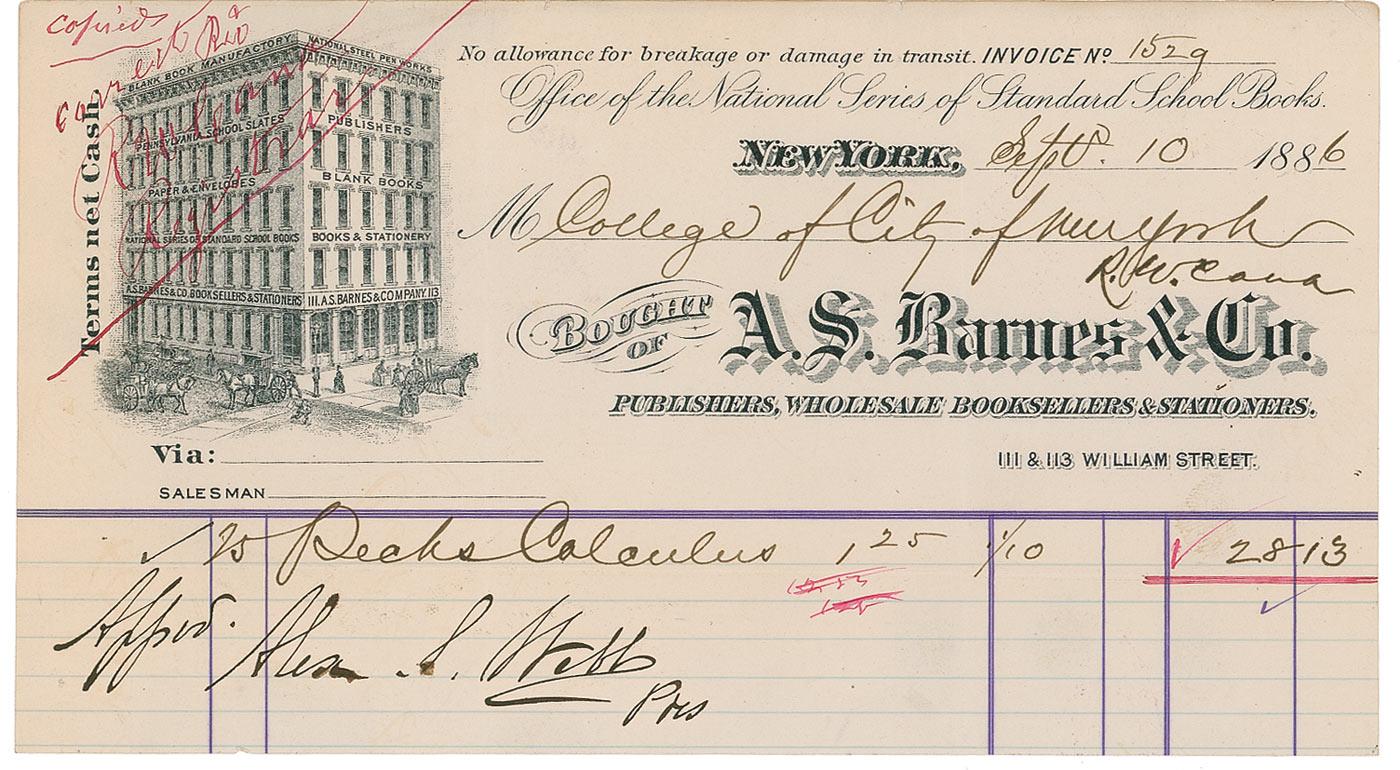 copied
correct
No allowance for breakage or damage in transit. INVOICE No. 1529
Office of the National Series of Standard School Books.
NEW YORK, Sept. 10 1886
M College of City of New York
R. W.
BOUGHT OF A. S. Barnes & Co.
PUBLISHERS, WHOLESALE BOOKSELLERS & STATIONERS.
111 & 113 WILLIAM STREET.
Terms net Cash.
BLANK BOOK MANUFACTORY
NATIONAL STEEL PEN WORKS
PENNSYLVANIA SCHOOL SLATES
PUBLISHERS
PAPER & ENVELOPES
BLANK BOOKS
NATIONAL SERIES OF STANDARD SCHOOL BOOKS
BOOKS & STATIONERY
A.S. BARNES & CO. BOOKSELLERS & STATIONERS
111. A.S. BARNES & COMPANY. 113
Via:
SALESMAN
25 Pecks Calculus 1 25 1/10 28 13
Appvd. Alex. S. Webb
Pres